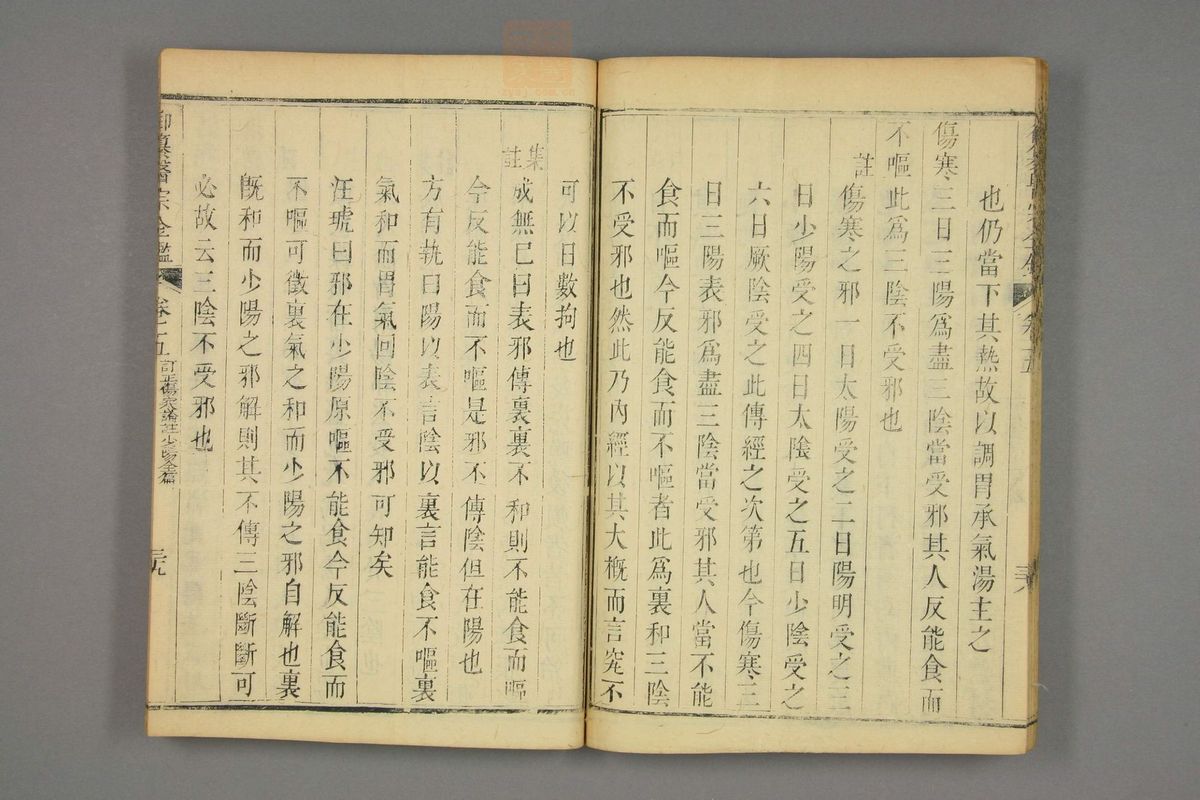 也仍當下其熱故以調胃承氣湯主之
傷寒三日三陽爲盡三陰當受邪其人反能食而
不嘔此爲三陰不受邪也
註傷寒之邪一日太陽受之二日陽明受之三
日少陽受之四日太陰受之五日少陰受之
六日厥陰受之此傳經之次第也今傷寒三
日三陽表邪爲盡三陰當受邪其人當不能
食而嘔今反能食而不嘔者此爲裏和三陰
不受邪也然此乃內經以其大槪而言究不
可以日數拘也
集註成無已曰表邪傳裏裏不和則不能食而嘔
今反能食而不嘔是邪不傳陰但在陽也
方有執曰陽以表言陰以裏言能食不嘔裏
氣和而胃氣回陰不受邪可知矣
汪琥曰邪在少陽原嘔不能食今反能食而
不嘔可徵裏氣之和而少陽之邪自解也裏
旣和而少陽之邪解則其不傳三陰斷斷可
必故云三陰不受邪也
御纂醫宗金鑑 卷之五 訂正傷寒論註少陽全篇 三九